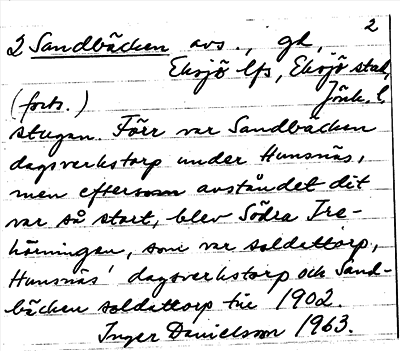 2
2 Sandbäcken avs., gh,
Eksjö lfs, Eksjö stad,
(forts.) Jönk. l
stugan. Förr var Sandbäcken
dagsverkstorp under Hunsnäs,
men eftersom avståndet dit
var så stort, blev Södra Tre-
hörningen, som var soldattorp,
Hunsnäs' dagsverkstorp och Sand-
bäcken soldattorp till 1902.
Inger Danielsson 1963.